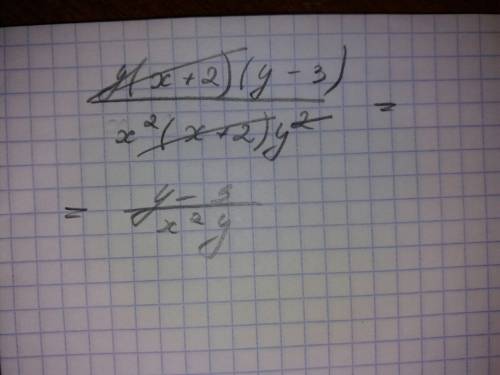 y(x+2)(y-3)
x²(x+2)y² =
= y-3
x²y